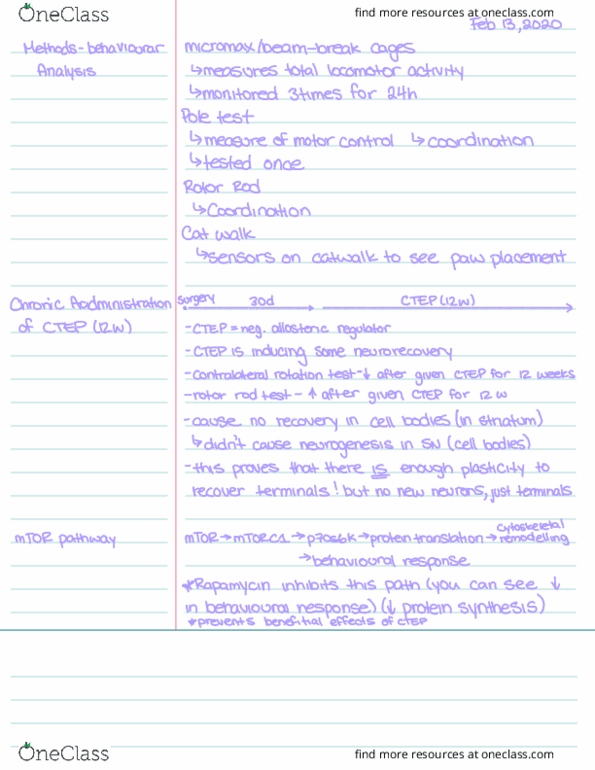 OneClass
find more resources at oneclass.com
Feb 13, 2020
Methods - behavioural
Analysis
micromax/beam-break cages
↳measures total locomotor activity
↳monitored 3times for 24h
Pole test
↳measure of motor control ↳coordination
↳tested once
Rotor Rod
↳Coordination
Cat walk
↳sensors on catwalk to see paw placement
Chronic Aodministration
of CTEP (12w)
surgery 30d CTEP (12w)
-CTEP = neg. allosteric regulator
-CTEP is inducing some neurorecovery
-contralateral rotation test-↓ after given CTEP for 12 weeks
-rotor rod test - ↑ after given CTEP for 12 w
-cause no recovery in cell bodies (in striatum)
↳didn't cause neurogenesis in SN (cell bodies)
-this proves that there is enough plasticity to
recover terminals! but no new neurons, just terminals
mTOR pathway
mTOR→mTORC1→p70s6K→protein translation→cytoskeletal remodelling
→behavioural response
*Rapamycin inhibits this path (you can see ↓
in behavioural response) (↓ protein synthesis)
*prevents benefitial effects of CTEP
OneClass
find more resources at oneclass.com